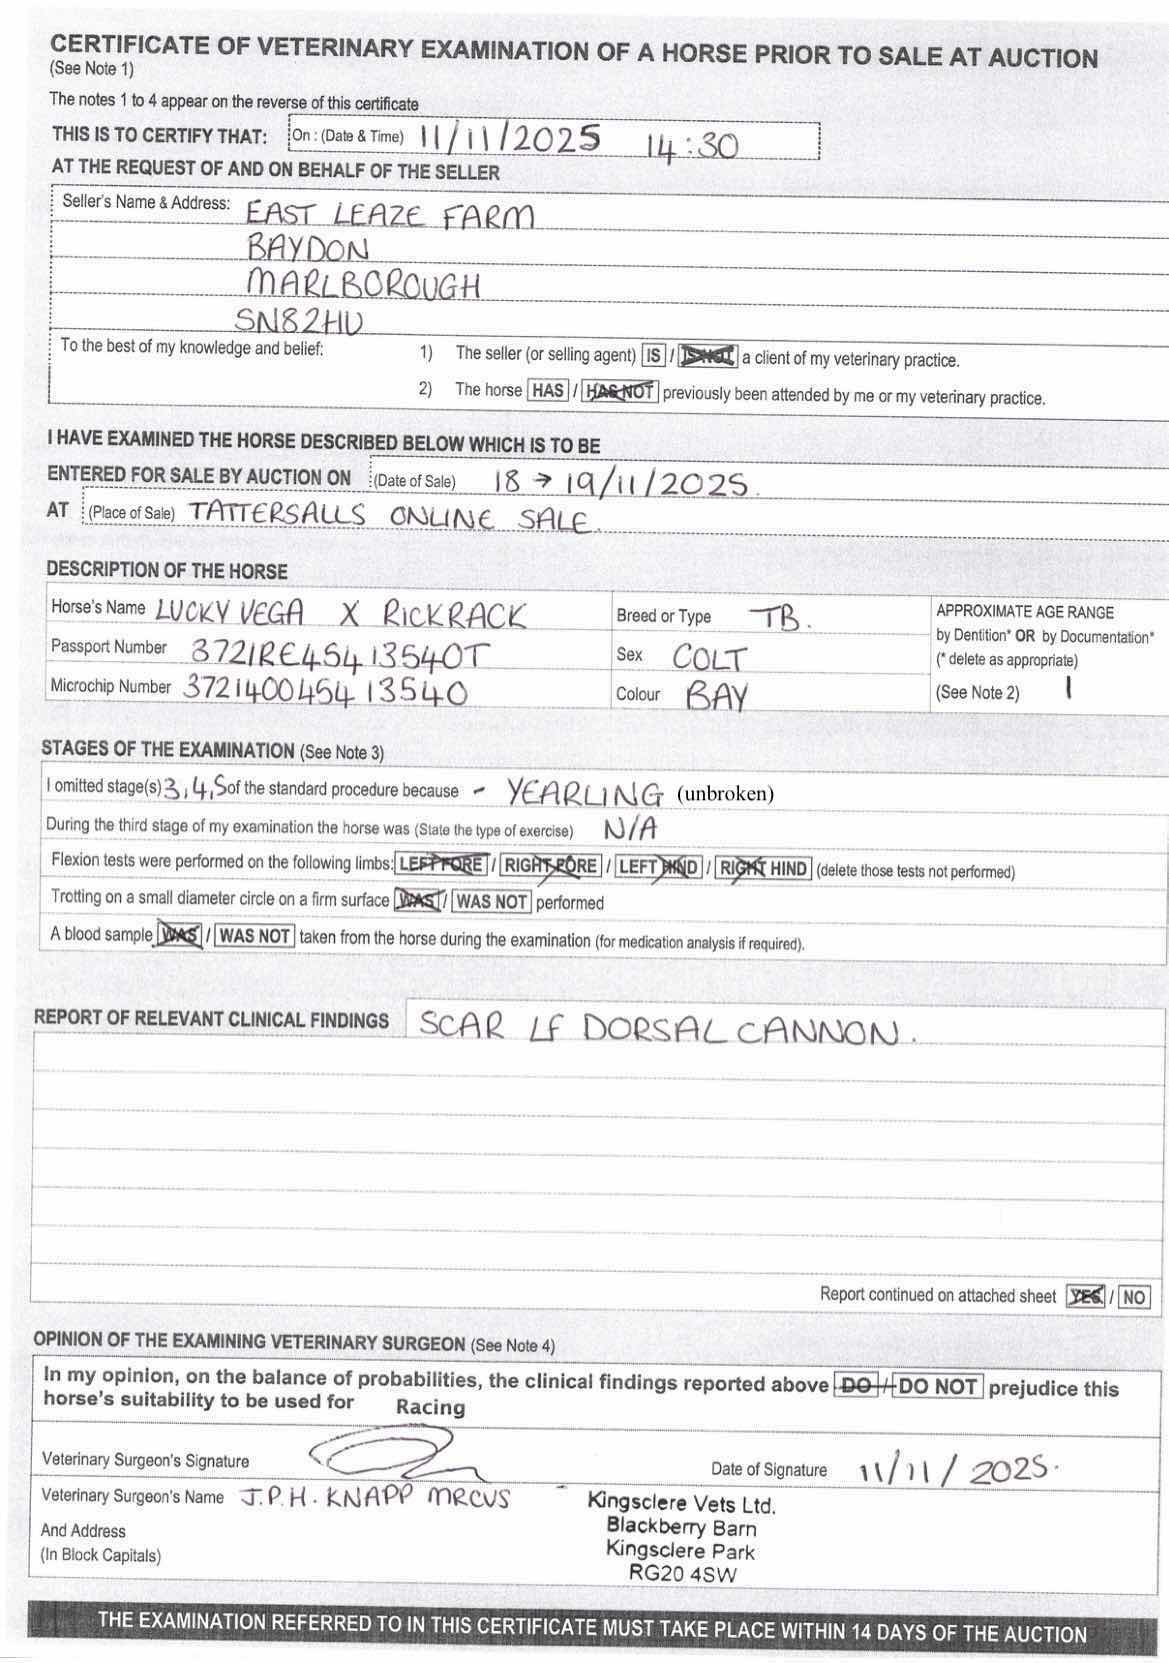 CERTIFICATE OF VETERINARY EXAMINATION OF A HORSE PRIOR TO SALE AT AUCTION
(See Note 1)
The notes 1 to 4 appear on the reverse of this certificate
THIS IS TO CERTIFY THAT: On : (Date & Time) 11/11/2025 14:30
AT THE REQUEST OF AND ON BEHALF OF THE SELLER
Seller's Name & Address: EAST LEAZE FARM
BAYDON
MARLBOROUGH
SN82HU
To the best of my knowledge and belief: 1) The seller (or selling agent) IS / IS NOT a client of my veterinary practice.
2) The horse HAS / HAS NOT previously been attended by me or my veterinary practice.
I HAVE EXAMINED THE HORSE DESCRIBED BELOW WHICH IS TO BE
ENTERED FOR SALE BY AUCTION ON (Date of Sale) 18 → 19/11/2025.
AT (Place of Sale) TATTERSALLS ONLINE SALE.
DESCRIPTION OF THE HORSE
Horse's Name LUCKY VEGA X RICKRACK Breed or Type TB. APPROXIMATE AGE RANGE
by Dentition* OR by Documentation*
Passport Number 372IRE45413540T Sex COLT (* delete as appropriate)
Microchip Number 372140045413540 Colour BAY (See Note 2) 1
STAGES OF THE EXAMINATION (See Note 3)
I omitted stage(s) 3,4,5 of the standard procedure because - YEARLING (unbroken)
During the third stage of my examination the horse was (State the type of exercise) N/A
Flexion tests were performed on the following limbs: LEFT FORE / RIGHT FORE / LEFT HIND / RIGHT HIND (delete those tests not performed)
Trotting on a small diameter circle on a firm surface WAS / WAS NOT performed
A blood sample WAS / WAS NOT taken from the horse during the examination (for medication analysis if required).
REPORT OF RELEVANT CLINICAL FINDINGS SCAR LF DORSAL CANNON.
Report continued on attached sheet YES / NO
OPINION OF THE EXAMINING VETERINARY SURGEON (See Note 4)
In my opinion, on the balance of probabilities, the clinical findings reported above DO / DO NOT prejudice this
horse's suitability to be used for Racing
Veterinary Surgeon's Signature Date of Signature 11/11/2025.
Veterinary Surgeon's Name J.P.H. KNAPP MRCVS - Kingsclere Vets Ltd.
And Address Blackberry Barn
(In Block Capitals) Kingsclere Park
RG20 4SW
THE EXAMINATION REFERRED TO IN THIS CERTIFICATE MUST TAKE PLACE WITHIN 14 DAYS OF THE AUCTION